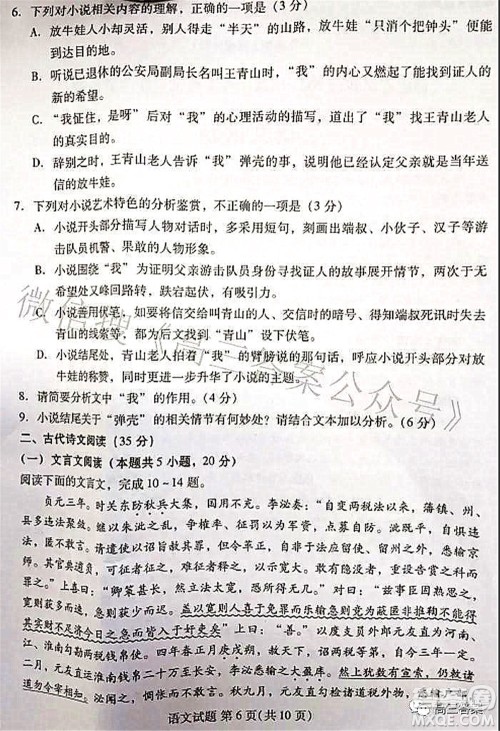 6. 下列对小说相关内容的理解，正确的一项是（3 分）
A. 放牛娃人小却灵活，别人得走“半天”的山路，放牛娃“只消个把钟头”便能到达目的地。
B. 听说已退休的公安局副局长名叫王青山时，“我”的内心又燃起了能找到证人的新的希望。
C. “我怔住，是呀”后对“我”的心理活动的描写，道出了“我”找王青山老人的真实目的。
D. 辞别之时，王青山老人告诉“我”弹壳的事，说明他已经断定父亲就是当年送信的放牛娃。
7. 下列对小说艺术特色的分析鉴赏，不正确的一项是（3 分）
A. 小说开头部分描写人物对话时，多采用短句，刻画出端叔、小伙子、汉子等游击队员机警、果敢的人物形象。
B. 小说围绕“我”为证明父亲游击队员身份寻找证人的故事展开情节，两次于无希望处又峰回路转，跌宕起伏，有吸引力。
C. 小说善用伏笔，如放牛娃信的送信人、交信时的暗号、当年游击队长可能还活着的线索等，都为后文找到“青山”设下伏笔。
D. 小说结尾处，王青山老人拍着“我”的臂膀说的那句话，呼应小说开头部分对放牛娃的称赞，同时更进一步升华了小说的主题。
8. 请简要分析文中“我”的作用。（4 分）
9. 小说结尾关于“弹壳”的相关情节有何妙处？请结合文本加以分析。（6 分）
二、古代诗文阅读（35 分）
（一）文言文阅读（本题共 5 小题，20 分）
阅读下面的文言文，完成 10～14 题。
贞元三年。时关东防秋兵大集，国用不充。李泌奏：“自变两税法以来，藩镇、州、
县多违法聚敛。继以朱泚之乱，争榷率、征罚以为军资，点募自防。泚既平，自惧违
法，匿不敢言。请遣使以诏旨赦其罪，但令革正，自非于法应留使、留州之外，悉输京
师。其官典逋负，可征者征之，难征者释之，以示宽大。敢有隐没者，重设告赏之科而
罪之。”上喜曰：“卿策甚长，然立法太宽，恐所得无几！”对曰：“兹事臣固熟思之，
宽则获多而速，急则获少而迟。盖以宽则人喜于免罪而乐输急则竞为蔽匿非推鞫不能得
其实财不足济今日之急而皆入于奸吏矣”上曰：“善。”以度支员外郎元友直为河南、
江、淮南勾勘两税钱帛使。四年春正月庚戌朔，赦天下，诏两税等第，自今三年一定。
二月，元友直运淮南钱帛二十万至长安，李泌悉输之大盈库。然上犹数有宣索，仍敕诸
道勿令宰相知。泌闻之，惆怅而不敢言。
语文试题 第 6 页（共 10 页）
微信搜《高三答案公众号》
高三答案
答案圈
MXQE.COM